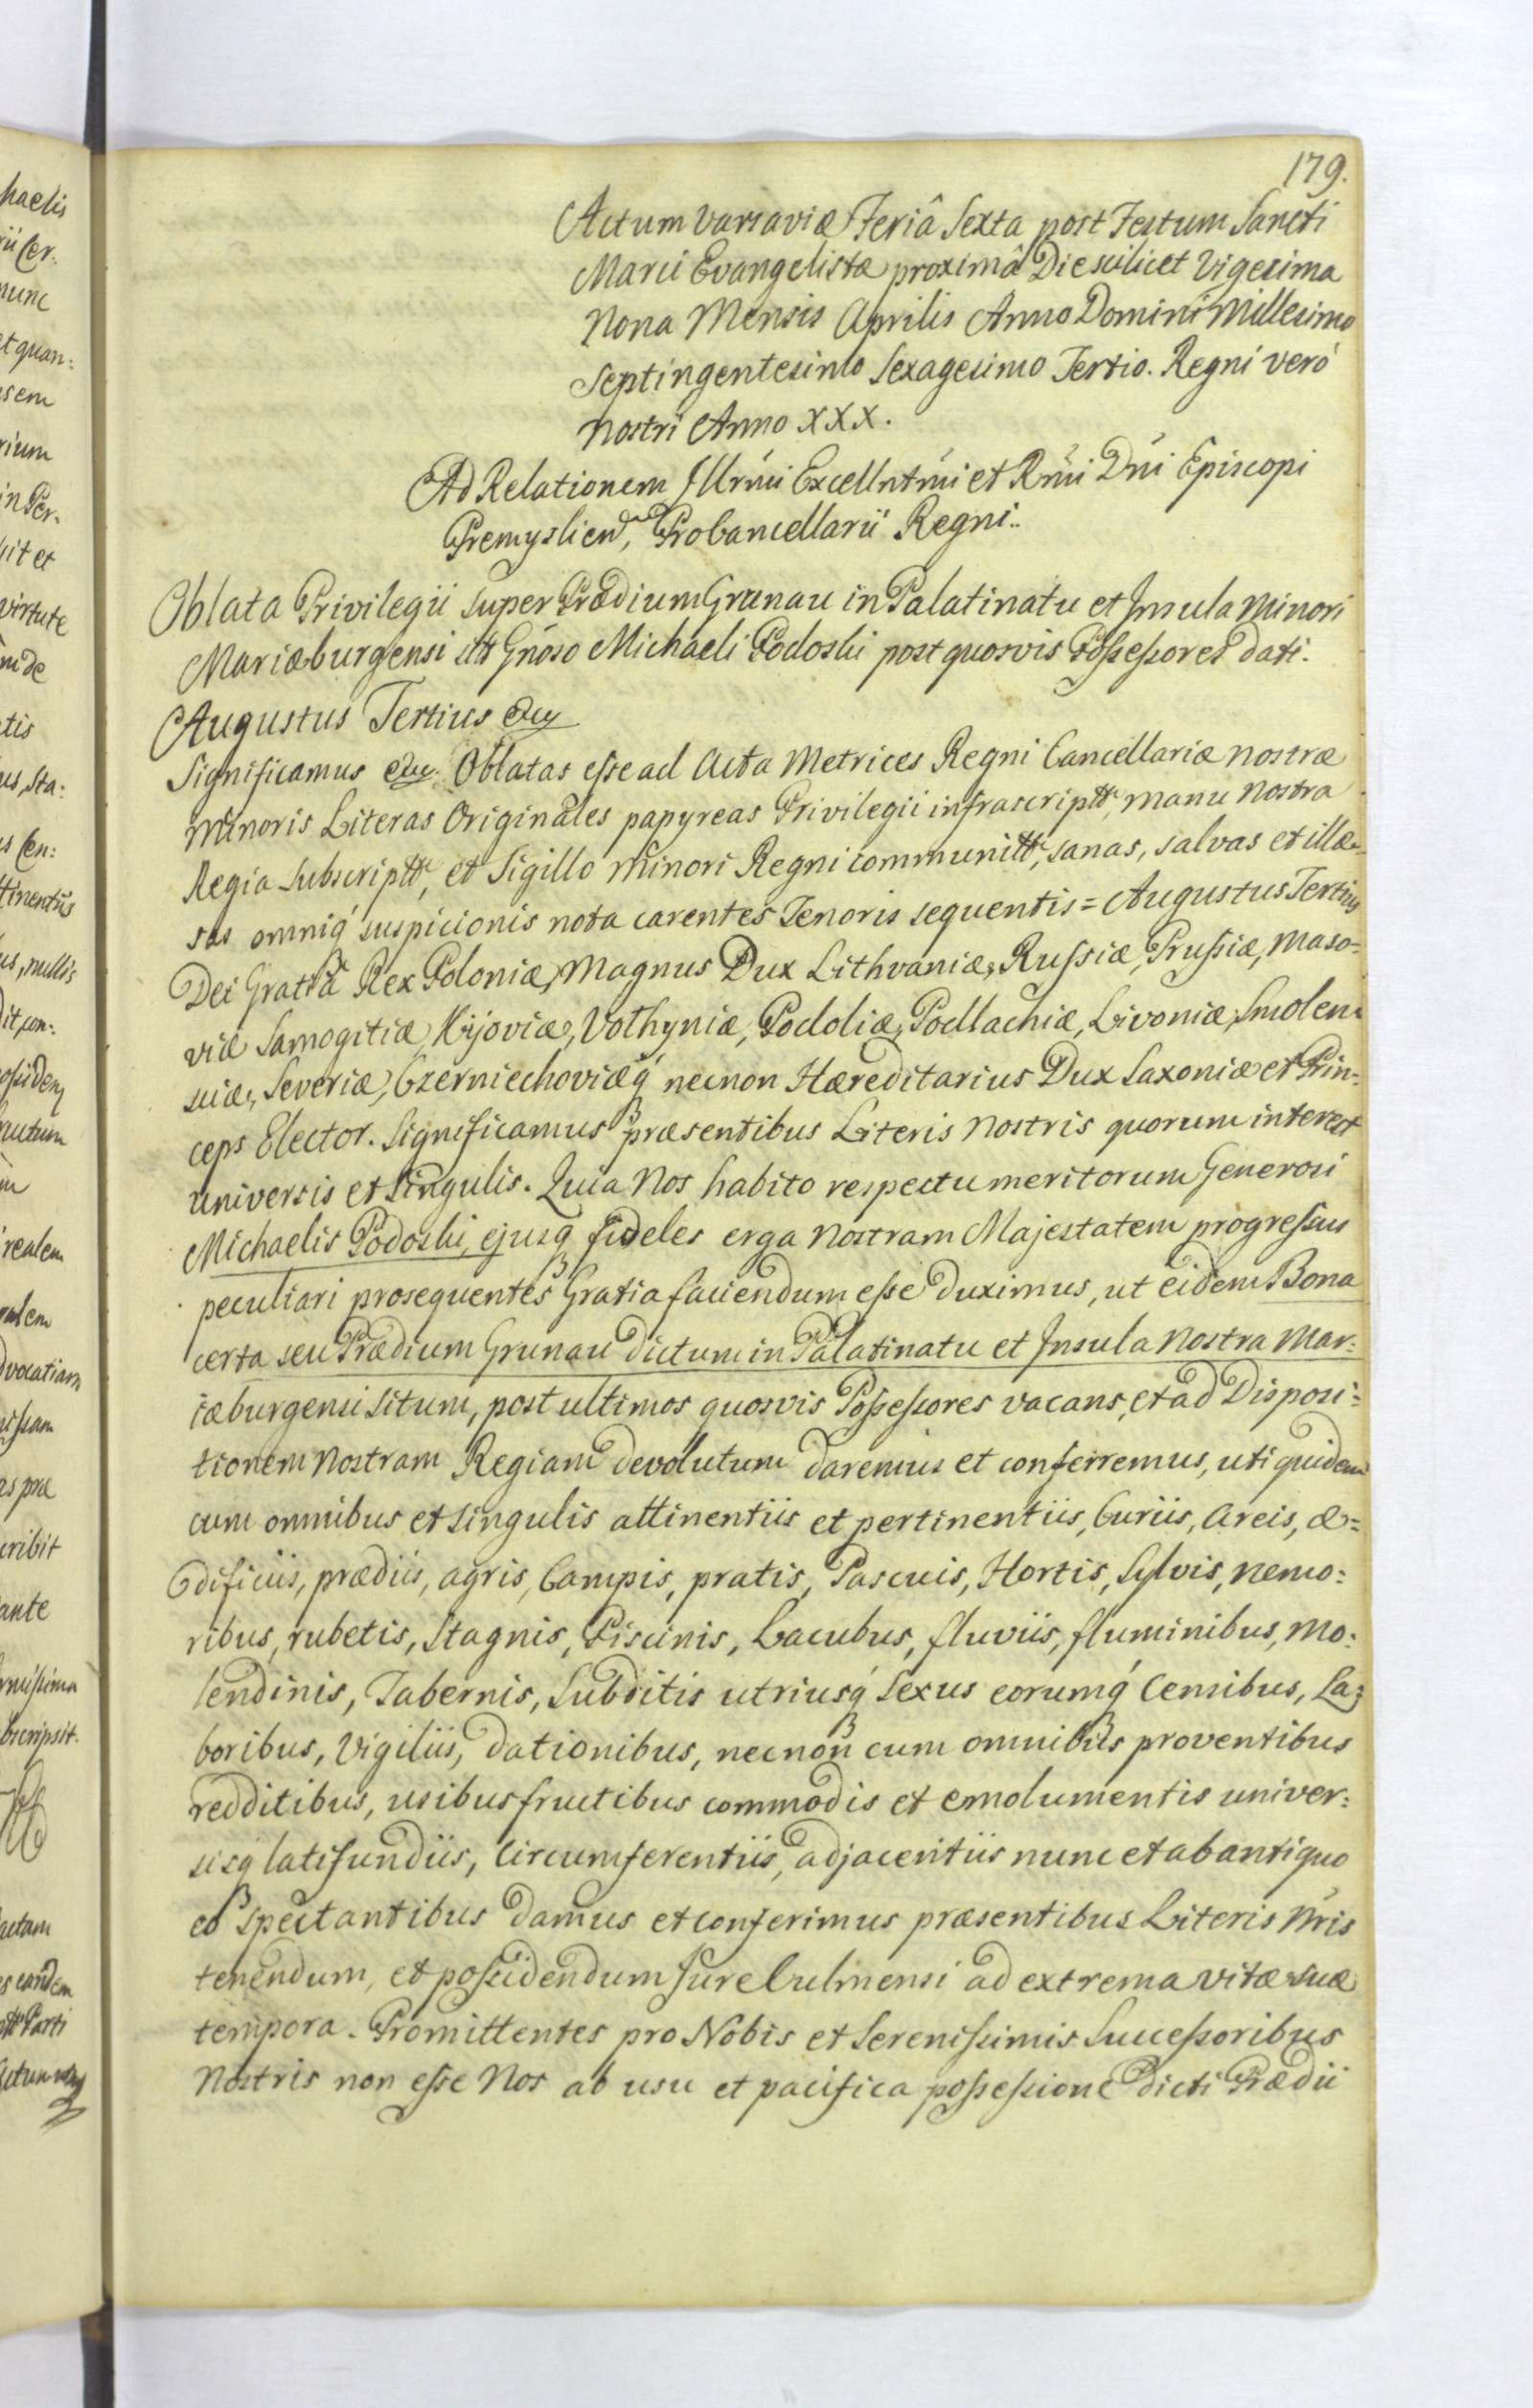 179.
Actum Varsaviæ Feriâ Sexta post Festum Sancti
Marci Evangelistæ proximâ Die scilicet Vigesima
Nona Mensis Aprilis Anno Domini Millesimo
Septingentesimo Sexagesimo Tertio. Regni verò
nostri Anno XXX.
Ad Relationem Illrmi Excellntmi et Rmi Dni Episcopi
Premyslien, Procancellarii Regni.
Oblata Privilegii super Prædium Grunau in Palatinatu et Insula Minori
Mariæburgensi Gnoso Michaeli Podoski post quosvis Possessores dati.
Augustus Tertius &c
Significamus &c. Oblatas esse ad Acta Metrices Regni Cancellariæ nostræ
Minoris Literas Originales papyreas Privilegii infrascriptt, manu Nostra
Regia subscriptt, et Sigillo minori Regni communitt, sanas, salvas et illæ-
sas omniq suspicionis nota carentes Tenoris sequentis = Augustus Tertius
Dei Gratiâ Rex Poloniæ, Magnus Dux Lithvaniæ, Russiæ, Prussiæ, Maso=
viæ Samogitiæ, Kijoviæ, Volhyniæ, Podoliæ, Podlachiæ, Livoniæ, Smolen:
sciæ, Severiæ, Czerniechoviæq necnon Hæreditarius Dux Saxoniæ et Prin=
ceps Elector. Significamus præsentibus Literis Nostris quorum interest
universis et singulis. Quia Nos habito respectu meritorum Generosi
Michaelis Podoski, ejusq fideles erga Nostram Majestatem progressus
peculiari prosequentes Gratia faciendum esse duximus, ut eidem Bona
certa seu Prædium Grunau dictum in Palatinatu et Insula Nostra Mar:
iæburgensi situm, post ultimos quosvis Possessores vacans, et ad Disposi:
tionem Nostram Regiam devolutum daremus et conferremus, uti quidem
cum omnibus et singulis attinentiis et pertinentiis, Curiis, Areis, æ=
dificiis, prædiis, agris, Campis, pratis, Pascuis, Hortis, Sylvis, nemo:
ribus, rubetis, Stagnis, Piscinis, Lacubus, fluviis, fluminibus, mo:
lendinis, Tabernis, Subditis utriusq Sexus eorumq Censibus, La:
boribus, Vigiliis, dationibus, necnon cum omnibus proventibus
redditibus, usibusfructibus commodis et emolumentis univer:
sisq latifundiis, Circumferentiis, adjacentiis nunc et ab antiquo
eo spectantibus damus et conferimus præsentibus Literis Nris
tenendum, et possidendum Jure Culmensi ad extrema vitæ suæ
tempora. Promittentes pro Nobis et Serenissimis Successoribus
Nostris non esse Nos ab usu et pacifica possessione dicti Prædii